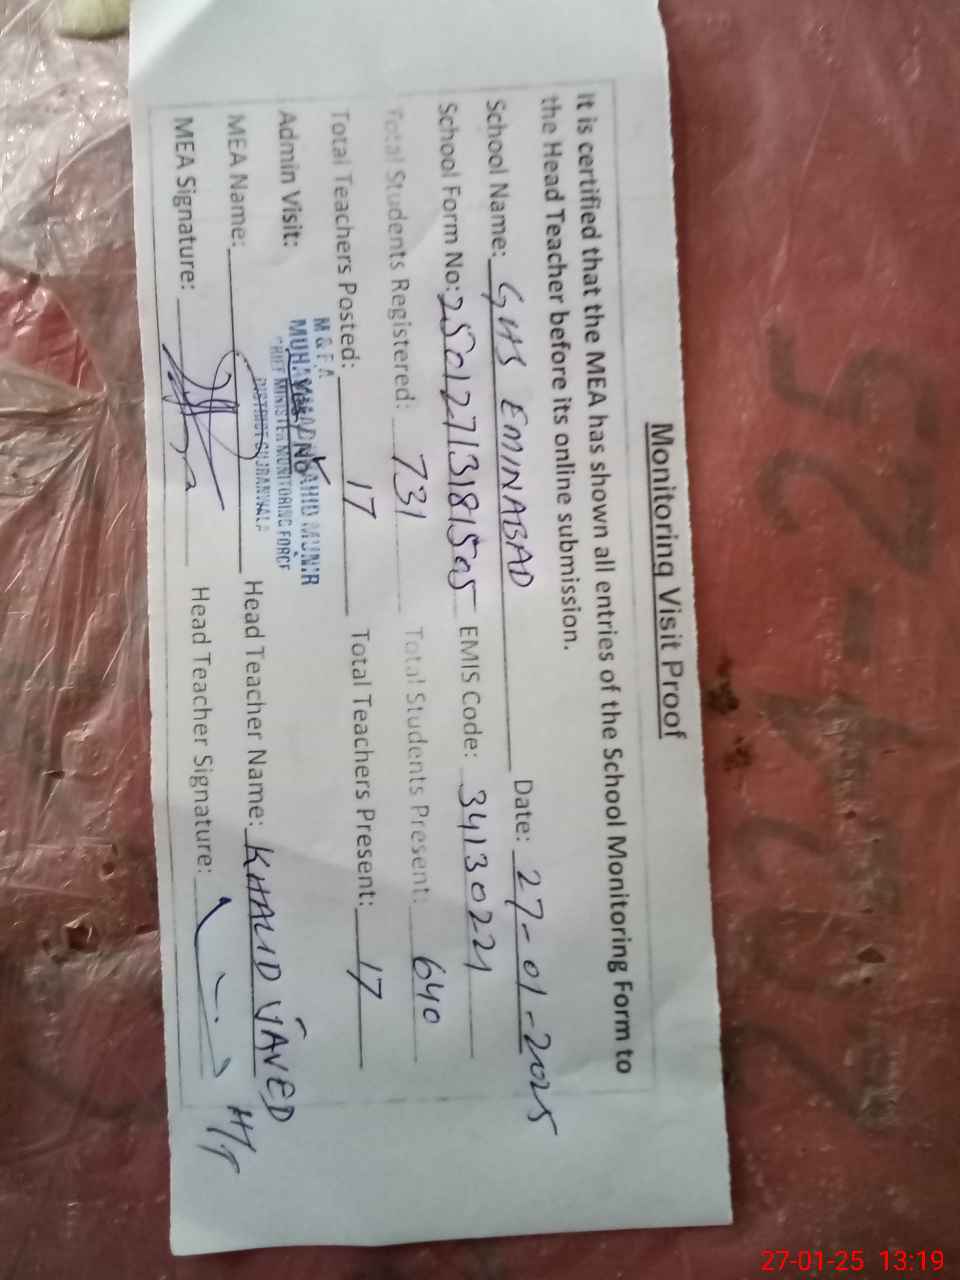 Monitoring Visit Proof
It is certified that the MEA has shown all entries of the School Monitoring Form to
the Head Teacher before its online submission.
School Name: GHS EMINABAD Date: 27-01-2025
School Form No: EMIS Code: 34130221
Total Students Registered: 731 Total Students Present: 640
Total Teachers Posted: 17 Total Teachers Present: 17
Admin Visit: Yes No
M & E A
MUHAMMAD MUNIR
CHIEF MINISTER MONITORING FORCE
DISTRICT GUJRANWALA
MEA Name: Head Teacher Name: KHALID JAVED
MEA Signature: Head Teacher Signature: H/T
27-01-25 13:19